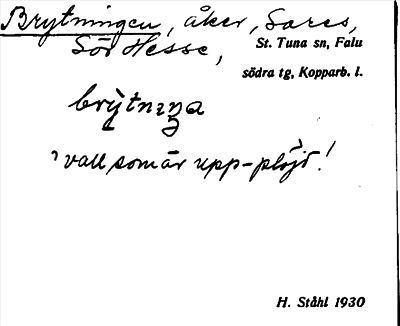 Brytningen, åker, Sares,
Sör Hesse,
St. Tuna sn, Falu
södra tg, Kopparb. l.
brỳtnıŋa
'vall som är upp-plöjd'!
H. Ståhl 1930